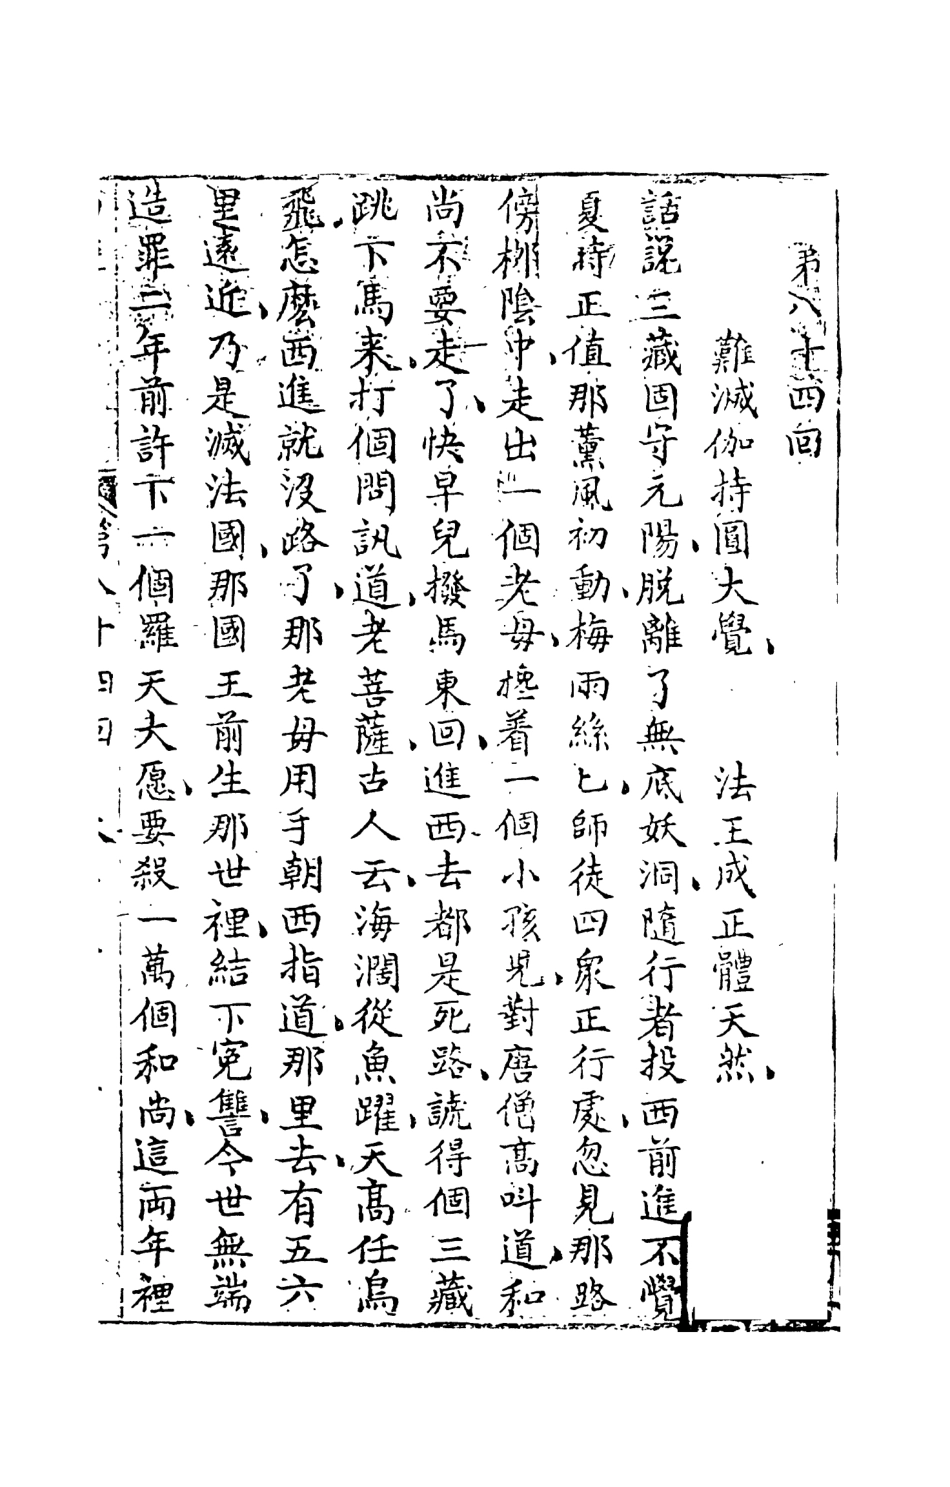 第八十四回
難滅伽持圓大覺、　法王成正體天然、
話說三藏固守元陽、脫離了無底妖洞、隨行者投西前進不覺
夏時正值那薰風初動、梅雨絲匕、師徒四衆正行處、忽見那路
傍柳陰中、走出一個老母、攙着一個小孩兒、對唐僧高叫道、和
尚不要走了、快早兒撥馬東回、進西去都是死路、諕得個三藏
跳下馬来、打個問訊道、老菩薩、古人云、海濶從魚躍、天高任鳥
飛、怎麽西進就没路了、那老母用手朝西指道、那里去、有五六
里遠近、乃是滅法國、那國王前生那世裡、結下寃讐、今世無端
造罪二年前許下一個羅天大愿、要殺一萬個和尚、這兩年裡
第八十四回